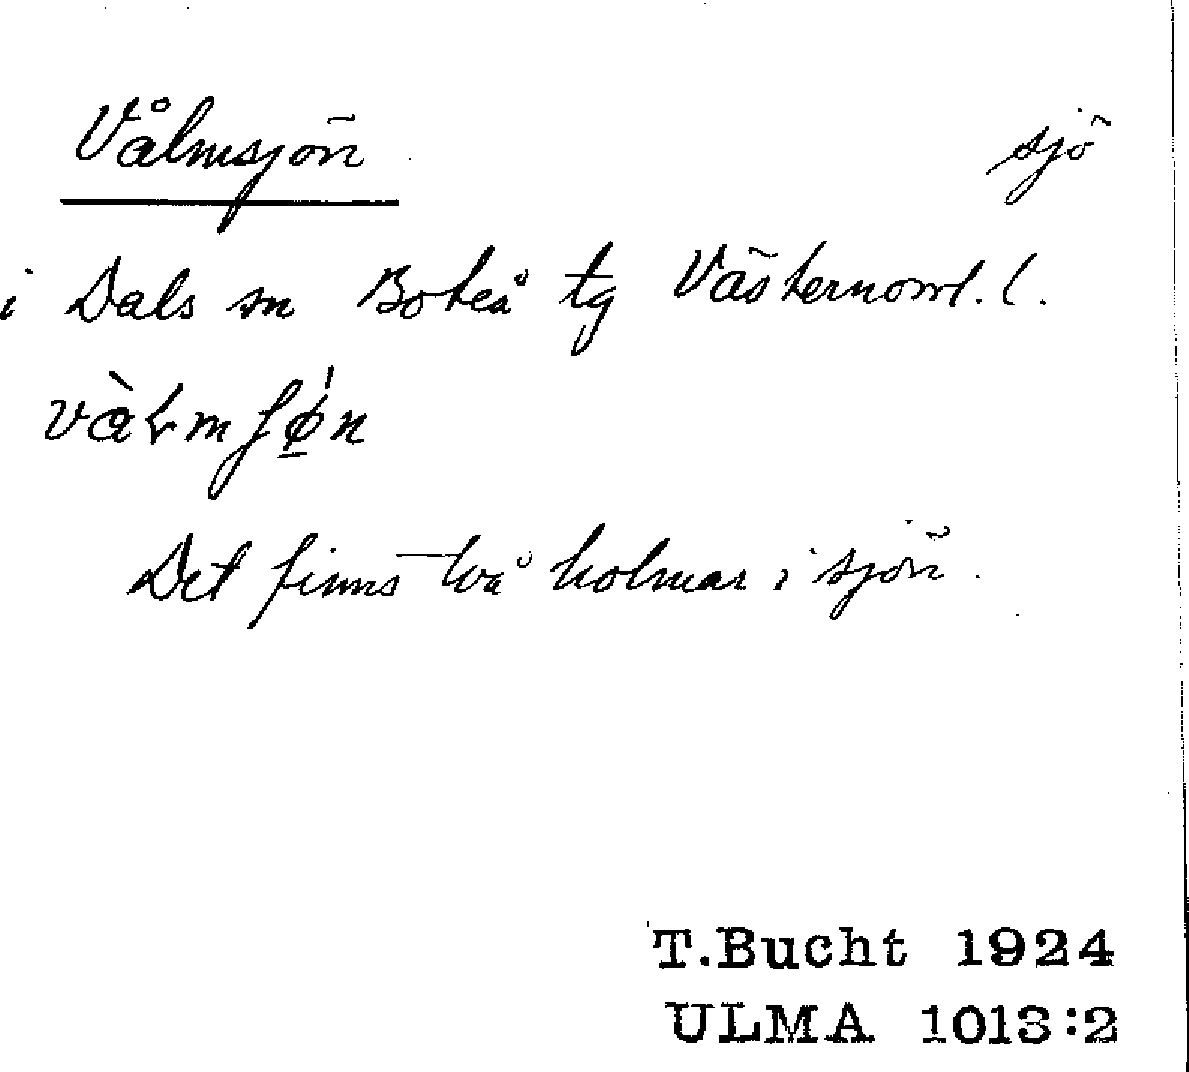 Vålmsjön sjö
i Dals sn Boteå tg Västernorrl. l.
Det finns två holmar i sjön.
T.Bucht 1924
ULMA 1013:2